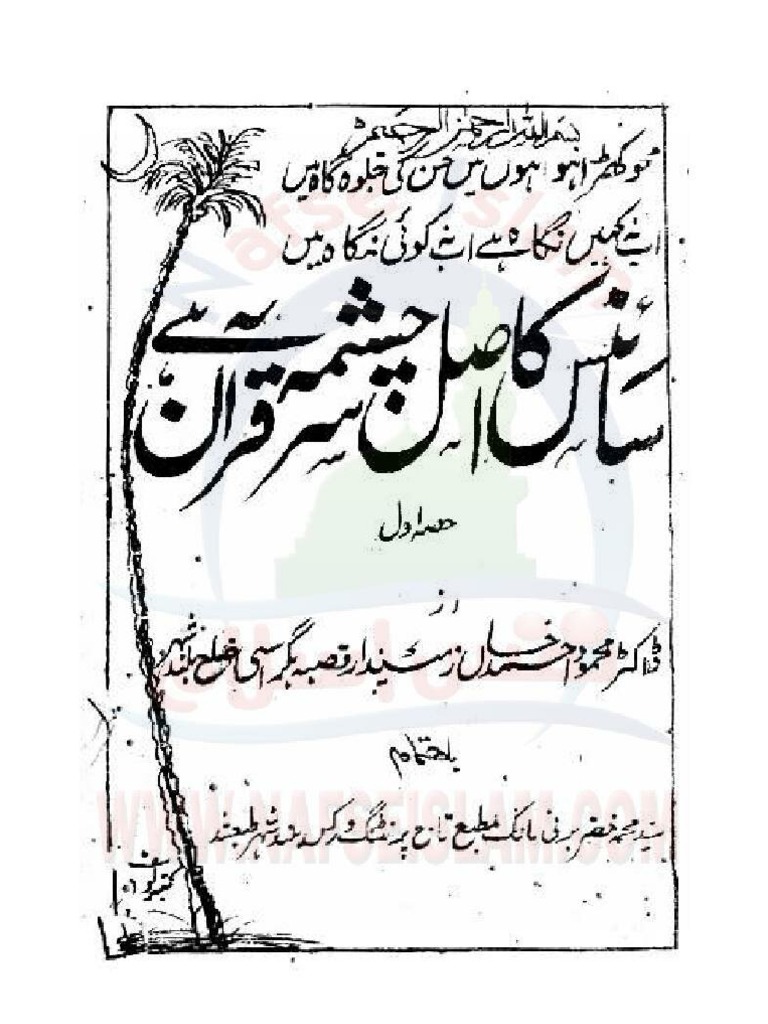 بسم اللہ الرحمن الرحیم
کھڑا ہوا ہوں میں حسن کی جلوہ گاہ میں
اب نہ کہیں نگاہ ہے اب نہ کوئی نگاہ میں
سائنس کا اصل سرچشمہ قرآن ہے
حصہ اول
از
ڈاکٹر محمود احمد خاں زمیندار قصبہ بگراسی ضلع بلند شہر
باہتمام
سید محمد خضر برنی مالک مطبع تاج پرنٹنگ ورکس بلند شہر طبع شد
WWW.NAFSEISLAM.COM